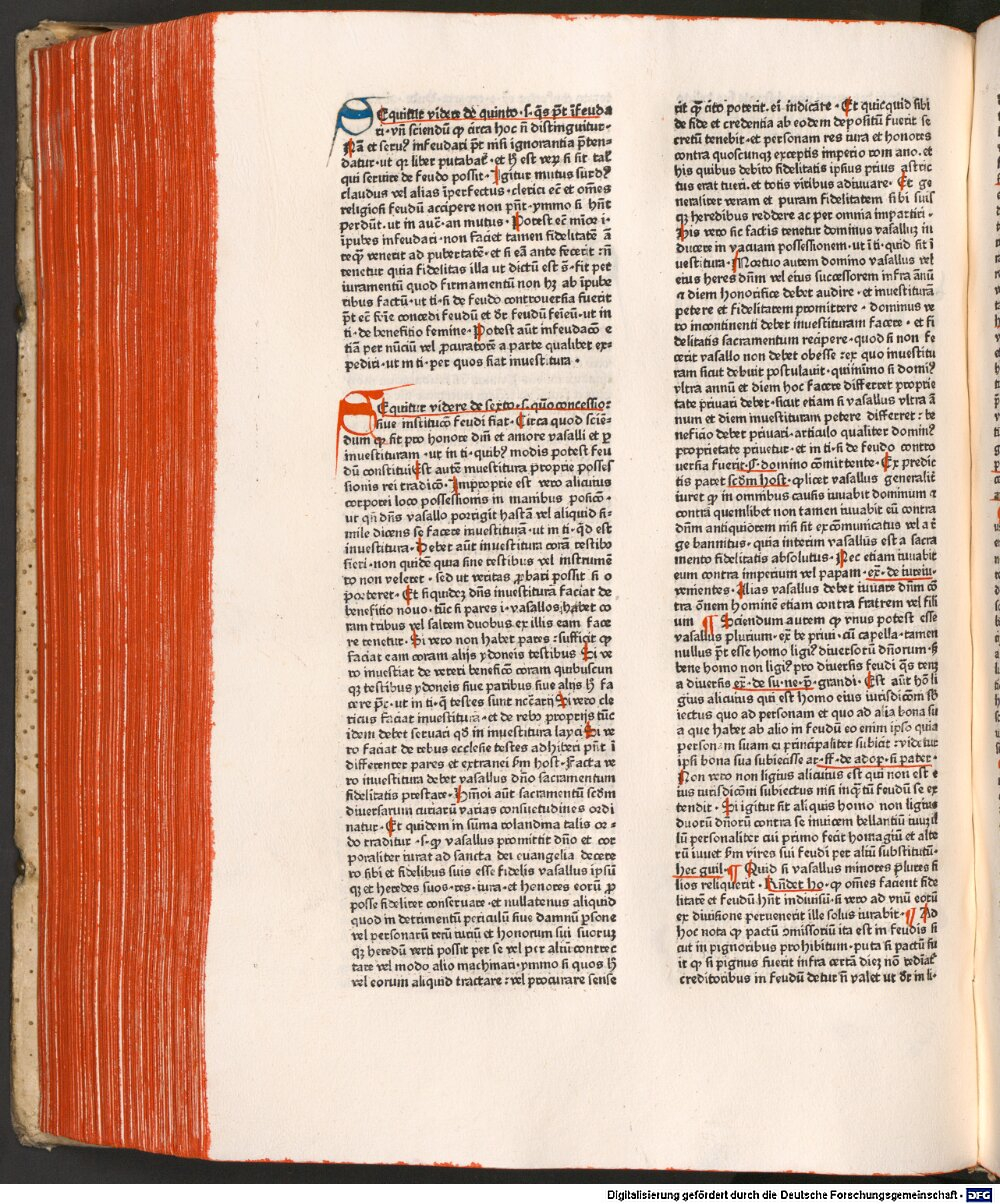 SEquitur videre de quinto .s. q̃s pt̃ īfeuda
ri · vñ sciendũ ꝙ circa hoc ñ distinguitur ·
Nã et seruꝰ infeudari pt̃ nisi ignorantia p̃ten⸗
datur · ut qꝛ liber putabat̃ · et h̃ est veꝝ si sit tal̃
qui seruire de feudo possit · Igitur mutus surdꝰ
claudus vel alias īperfectus · clerici ec̃ et om̃es
religiosi feudũ accipere non pñt · ymmo si hñt
perdũt · ut in auc̃ · an mutus · Potest ec̃ mĩor i ·
īpubes infeudari · non faciet tamen fidelitatẽ ã
teqͣ venerit ad pubertatẽ · et si eã ante fecerit : ñ
tenetur quia fidelitas illa ut dictũ est s̃ · fit per
iuramentũ quod firmamentũ non hꝫ ab īpube
ribus factũ · ut ti · si de feudo controuersia fuerit
pt̃ ec̃ fẽĩe concedi feudũ et dr̃ feudũ feĩeũ · ut in
ti · de benefitio femine · Potest aũt infeudacõ e
tiã per nũciũ vel ꝓcuratorẽ a parte qualibet ex⸗
pediri · ut in ti · per quos fiat inuestitura ·
SEquitur videre de sexto .s. quõ concessio⸗
siue institucõ feudi fiat · Circa quod sciẽ⸗
dum ꝙ fit pro honore dñi et amore vasalli et p
inuestituram · ut in ti · quibꝰ modis potest feu
dũ constitui Est autẽ inuestitura proprie posses
sionis rei tradicõ · Improprie est vero alicuius
corporei loco possessionis in manibus posicõ ·
ut qñ dñs vasallo porrigit hastã vel aliquid si⸗
mile dicens se facere inuestiturã · ut in ti · qd̃ est
inuestitura · Debet aũt inuestitura corã testibꝰ
fieri · non quidẽ quia sine testibus vel instrumẽ
to non valeret · sed ut veritas ꝓbari possit si o
porteret · Et siquidez dñs inuestitura faciat de
benefitio nouo · tũc si pares i · vasallos habet co
ram tribus vel saltem duobus ex illis eam face
re tenetur · Si vero non habet pares : sufficit ꝙ
faciat eam coram alijs ydoneis testibus Si ve
ro inuestiat de veteri beneficõ coram quibuscun
qꝫ testibus ydoneis siue paribus siue alijs h̃ fa
cere pt̃ · ut in ti · q̃ testes sunt nccãrij Si vero cle
ricus faciat inuestiturã · et de rebꝰ proprijs tũc
idem debet seruari qd̃ in inuestitura layci Si ve
ro faciat de rebus ecclesie testes adhiberi pñt ĩ
differenter pares et extranei s̃m host · Facta ve
ro inuestitura debet vasallus dño sacramentum
fidelitatis prestare · Hmõi aũt sacramentũ scd̃m
diuersarum curiarũ varias consuetudines ordi
natur · Et quidem in suma rolandina talis or⸗
do traditur · s · ꝙ vasallus promittit dño et cor
poraliter iurat ad sancta dei euangelia de cetero
ro sibi et fidelibus suis esse fidelis vasallus ipsũ
qꝫ et heredes suos · res · iura · et honores eorũ ꝓ
posse fideliter conseruare · et nullatenus aliquid
quod in detrimentũ periculũ siue damnũ psone
vel personarũ rerũ iuriũ et honorum sui suorũ
qꝫ heredũ verti possit per se vel per aliũ contrec
tare vel modo alio machinari · ymmo si quos h̃
vel eorum aliquid tractare : vel procurare sense
rit ꝙͣ cito poterit · ei indicare · Et quicquid sibi
de fide et credentia ab eodem depositũ fuerit se
cretũ tenebit · et personam res iura et honores
contra quoscunqꝫ exceptis imperio romano · et
his quibus debito fidelitatis ipsius prius astric
tus erat tueri · et totis viribus adiuuare · Et ge
neraliter veram et puram fidelitatem sibi suis
qꝫ heredibus reddere ac per omnia impartiri ·
His vero sic factis tenetur dominus vasallũ in
ducere in vacuam possessionem · ut ī ti · quid sit ī
uestitura · Mortuo autem domino vasallus vel
eius heres dñm vel eius successorem infra ãnũ
⁊ diem honorifice debet audire · et inuestiturã
petere et fidelitatem promittere · dominus ve
ro incontinenti debet inuestituram facere · et fi
delitatis sacramentum recipere · quod si non fe
cerit vasallo non debet obesse : ex quo inuestitu
ram sicut debuit postulauit · quinimo si domiꝰ
vltra annũ et diem hoc facere differret proprie
tate priuari debet · sicut etiam si vasallus vltra ã
num et diem inuestituram petere differret : be
neficio debet priuari · articulo qualiter dominꝰ
proprietate priuetur · et in ti · si de feudo contro
uersia fuerit · s · domino cõmittente · Ex predic
tis patet scd̃m host · ꝙ licet vasallus generalit̃
iuret ꝙ in omnibus causis iuuabit dominum ⁊
contra quemlibet non tamen iuuabit eũ contra
dñm antiquiorem nisi sit excõmunicatus vel a r̃
ge bannitus · quia interim vasallus est a sacra
mento fidelitatis absolutus · Nec etiam iuuabit
eum contra imperium vel papam · ex̃ · de iureiu ·
venientes · Alias vasallus debet iuuare dñm cõ
tra õnem hominẽ etiam contra fratrem vel fili
um ¶ Sciendum autem ꝙ vnus potest esse
vasallus plurium · ex̃ be priui · cũ capella · tamen
nullus pt̃ esse homo ligiꝰ diuersorũ dñorum · s̃
bene homo non ligiꝰ pro diuersis feudi q̃s tenꝫ
a diuersis ex̃ · de su · ne · p̃ · grandi · Est aũt hõ li
gius alicuius qui est homo eius iurisdicõm sb̃
iectus quo ad personam et quo ad alia bona su
a que habet ab alio in feudũ eo enim ipso quia
personam suam ei principaliter subicit : videtur
ipsi bona sua subiecisse ar · ff · de adop · si pater ·
Non vero non ligius alicuius est qui non est e
ius iurisdicõni subiectus nisi inqͣtũ feudũ se ex
tendit · Si igitur sit aliquis homo non ligius
duorũ dñorũ contra se inuicem bellantiũ iuuꝫ il
lũ personaliter cui primo fecit homagiũ et alte
rũ iuuet s̃m vires sui feudi per aliũ substitutũ ·
hec guil · ¶ Quid si vasallus minores plures fi
lios reliquerit · Rñdet ho · ꝙ om̃es facient fide
litatẽ et feudũ hñt indiuisũ · si vero ad vnũ eorũ
ex diuisione peruenerit ille solus iurabit · ¶ Ad
hoc nota ꝙ pactũ ꝯmissoriũ ita est in feudis si
cut in pignoribus prohibitum · puta si pactũ fu
it ꝙ si pignus fuerit infra certã dieꝫ nõ redĩat̃
creditoribus in feudũ detur ñ valet ut dr̃ in li⸗
Digitalisierung gefördert durch die Deutsche Forschungsgemeinschaft · DFG